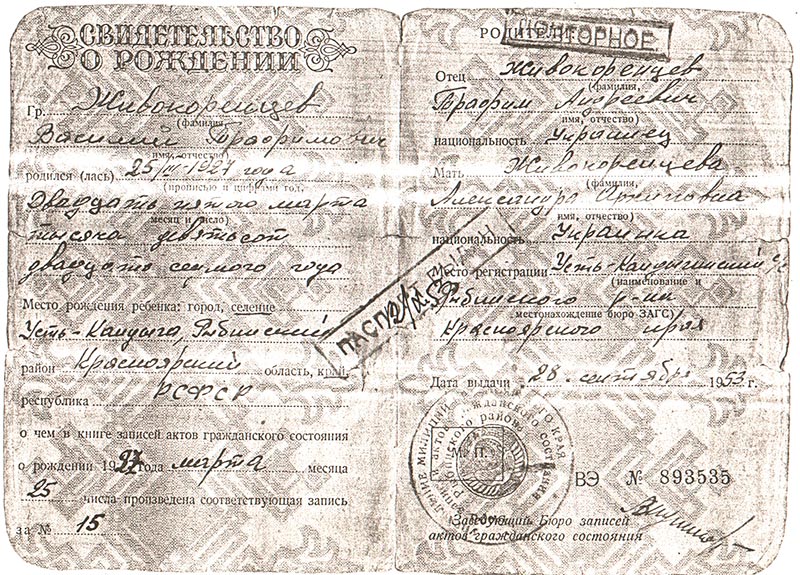 СВИДЕТЕЛЬСТВО
О РОЖДЕНИИ
Гр. Живокоренцев
(фамилия,
Василий Трофимович
имя, отчество)
родился (лась) 25/III-1927 года
(прописью и цифрами год,
Двадцать пятого марта
месяц и число)
тысяча девятьсот
двадцать седьмого года
Место рождения ребенка: город, селение
Усть-Кандыга, Рыбинский
район Красноярский область, край
республика РСФСР
о чем в книге записей актов гражданского состояния
о рождении 1927 года марта месяца
25 числа произведена соответствующая запись
за № 15
РОДИТЕЛИ
ПОВТОРНОЕ
Отец Живокоренцев
(фамилия,
Трофим Андреевич
имя, отчество)
национальность Украинец
Мать Живокоренцева
(фамилия,
Александра
имя, отчество)
национальность Украинка
Место регистрации Усть-Кандыгинский с/с
(наименование и
Рыбинского р-на
местонахождение бюро ЗАГС)
Красноярского края
Дата выдачи 28 сентября 1953 г.
ПАСПОРТ ВЫДАН
М. П.
ВЭ № 893535
Заведующий Бюро записей
актов гражданского состояния